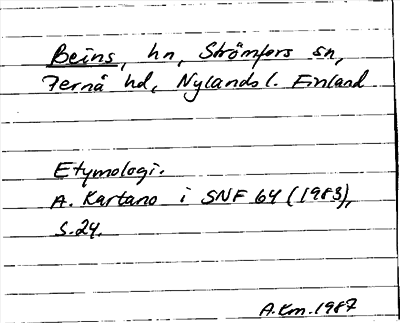 Beins, hn, Strömfors sn,
Pernå hd, Nylands l. Finland
Etymologi.
A. Kartano i SNF 64 (1983),
S.24.
A.Km.1987